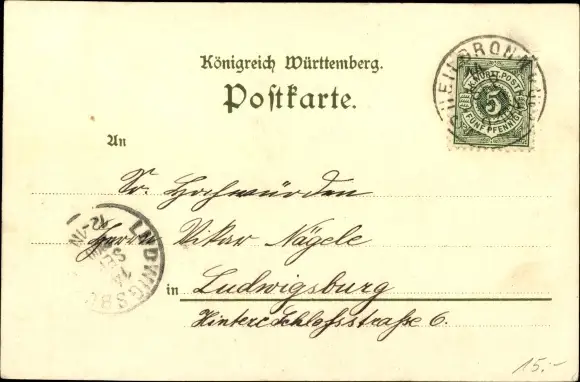 Königreich Württemberg.
Postkarte.
HEILBRONN
14
K. WÜRTT. POST
5
FÜNF PFENNIG
An
Sr. Hochwürden
Herrn Vikar Nägele
in Ludwigsburg
Hintere Schloßstraße 6.
LUDWIGSBU
14
SEP
12-1N
15.-